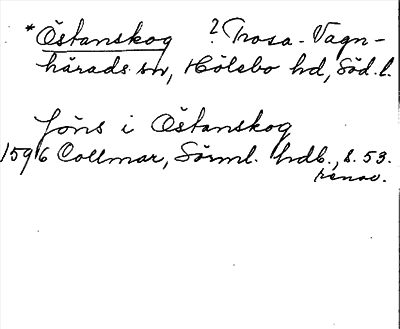 *Östanskog ? Trosa-Vagn-
härads sn, Hölebo hd, Söd.l.
Jöns i Östanskog
1596 Collmar, Sörml. hdb., s. 53.
renov.